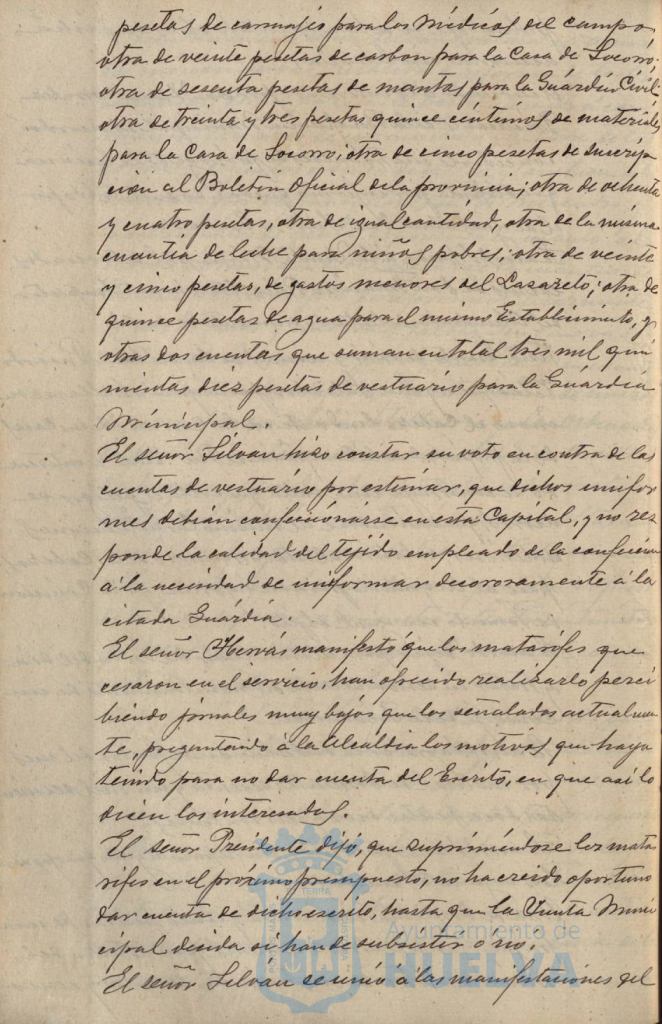 pesetas de carruajes para los Médicos del campo,
otra de veinte pesetas de carbon para la Casa de Socorro;
otra de sesenta pesetas de mantas para la Guárdia Civil;
otra de treinta y tres pesetas quince céntimos de materiales
para la Casa de Socorro; otra de cinco pesetas de suscrip
cion al Boletin Oficial de la provincia; otra de ochenta
y cuatro pesetas, otra de igual cantidad, otra de la misma
cuantia de leche para niños pobres; otra de veinte
y cinco pesetas, de gastos menores del Lazareto; otra de
quince pesetas de agua para el mismo Establecimiento, y
otras dos cuentas que suman en total tres mil qui
nientas diez pesetas de vestuario para la Guárdia
Municipal.
El señor Silván hizo constar su voto en contra de las
cuentas de vestuario por estimar, que dichos unifor
mes debian confeccionarse en esta Capital, y no res
ponde la calidad del tejido empleado de la confeccion
á la necesidad de uniformar decorosamente á la
citada Guárdia.
El señor Hervás manifestó que los matarifes que
cesaron en el servicio, han ofrecido realizarlo perci
biendo jornales muy bajos que los señalados actualmen
te, preguntando á la Alcaldia los motivos que haya
tenido para no dar cuenta del Escrito, en que asi lo
dicen los interesados.
El señor Presidente dijo, que suprimiéndose los mata
rifes en el próximo presupuesto, no ha creido oportuno
dar cuenta de dicho escrito, hasta que la Junta Muni
cipal decida si han de subsistir o no.
El señor Silván se unió á las manifestaciones del
Ayuntamiento de
HUELVA